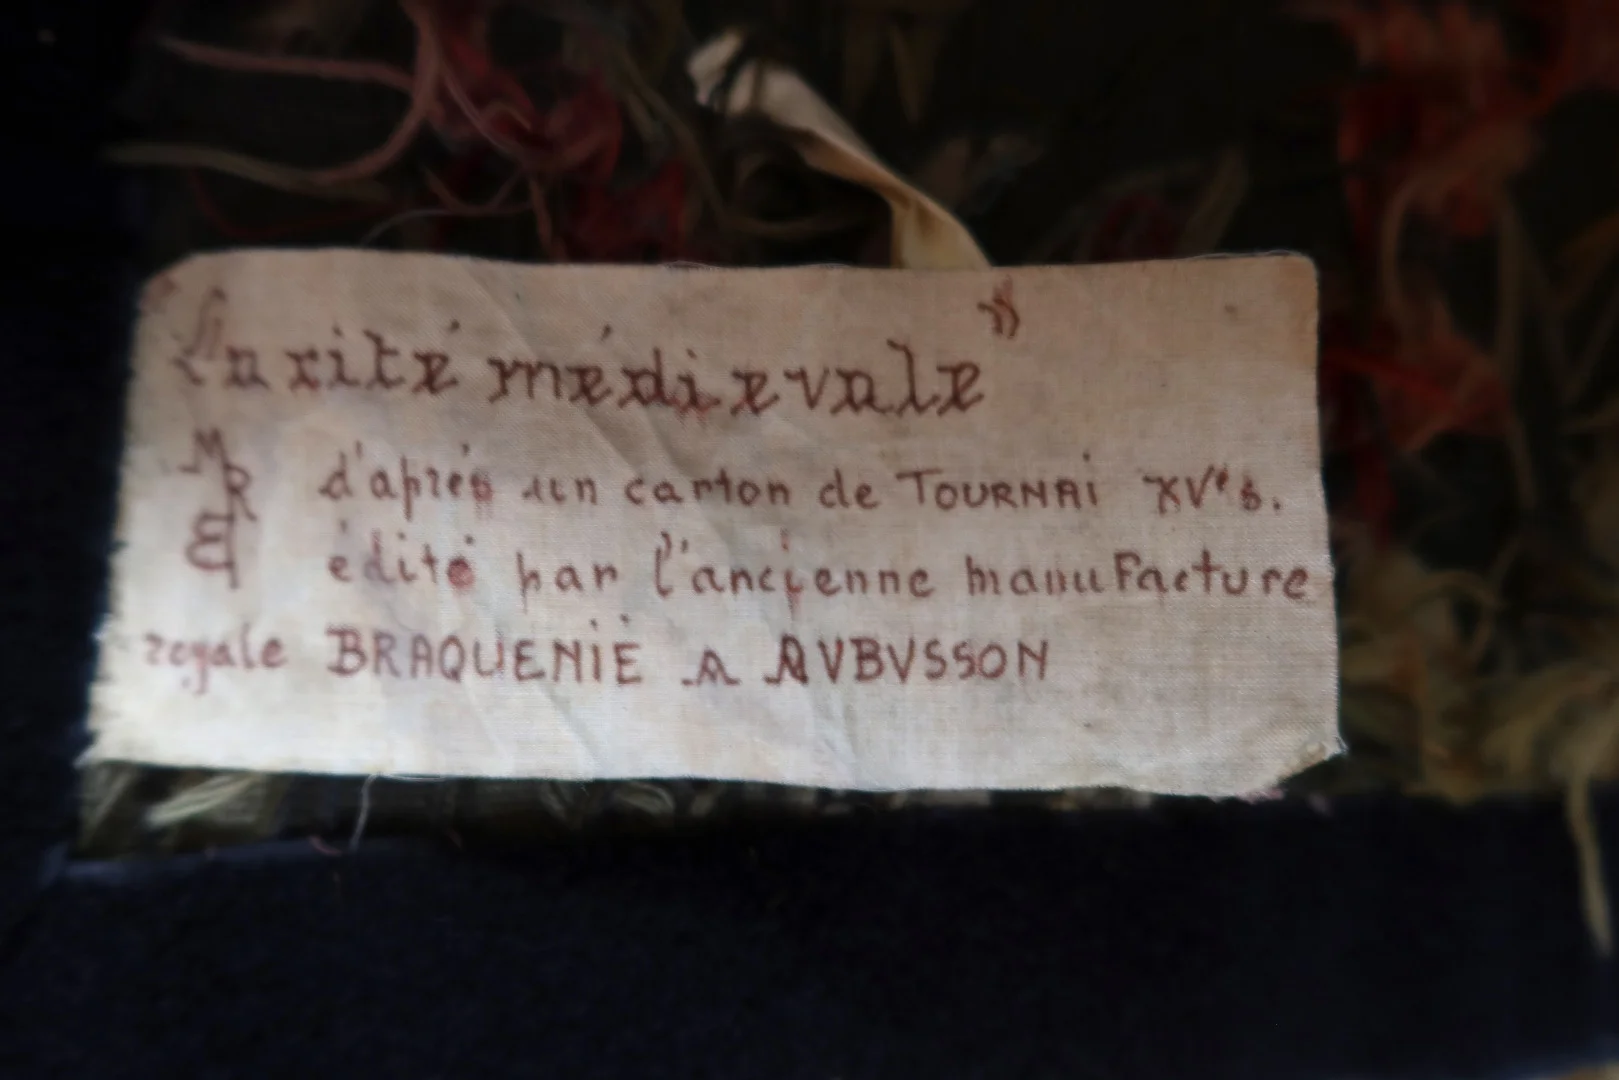 "La cité médievale"
MR d'après un carton de TOURNAI XVe s.
B édité par l'ancienne manuFacture
royale BRAQUENIÉ A AUBUSSON